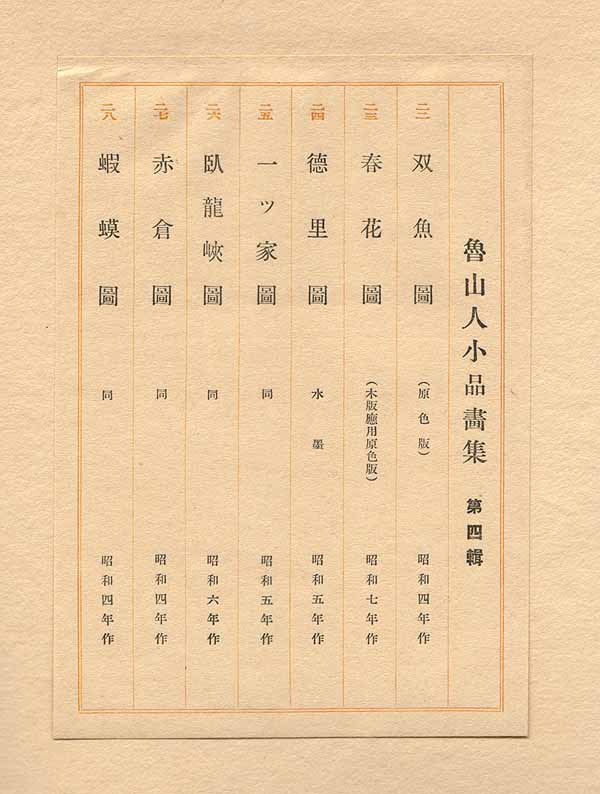 魯山人小品畵集 第四輯
二二 双魚圖 (原色版) 昭和四年作
二三 春花圖 (木版應用原色版) 昭和七年作
二四 德里圖 水墨 昭和五年作
二五 一ッ家圖 同 昭和五年作
二六 臥龍峽圖 同 昭和六年作
二七 赤倉圖 同 昭和四年作
二八 蝦蟆圖 同 昭和四年作